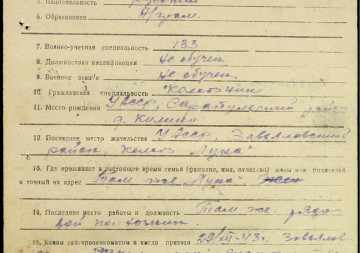 5. Национальность русский
6. Образование Н/грам.
7. Военно-учетная специальность 133
8. Должностная квалификация Не обучен
9. Военное зван'е Не обучен.
10. Гражданская специальность "Колхозник
11. Место рождения УАССР, Сарапульский район
д.
12. Последнее место жительства УАССР, Завьяловский
район, колхоз "Луча"
13. Где проживает в настоящее время семья (фамилия, имя, отчество) жены или родителей
и точный их адрес Там же "Луча"
14. Последнее место работы и должность Там же. рядо
вой колхозник
15. Каким райгорвоенкоматом и когда призван 29/XII-43г. Завьялов